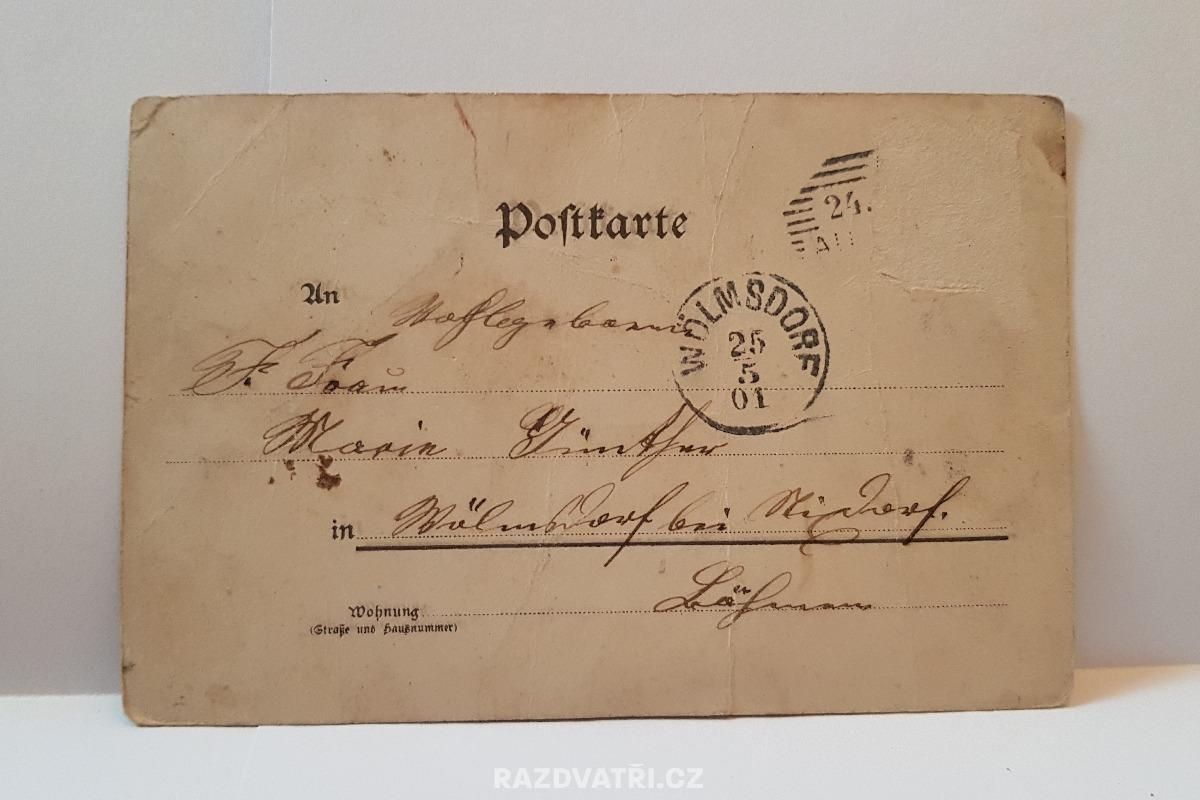 Postkarte
24.
An Wohlgeboren
WÖLMSDORF
25
5
01
F. Frau
Marie Günther
in Wölmsdorf bei Nixdorf.
Böhmen
Wohnung
(Straße und Hausnummer)
RAZDVATŘI.CZ